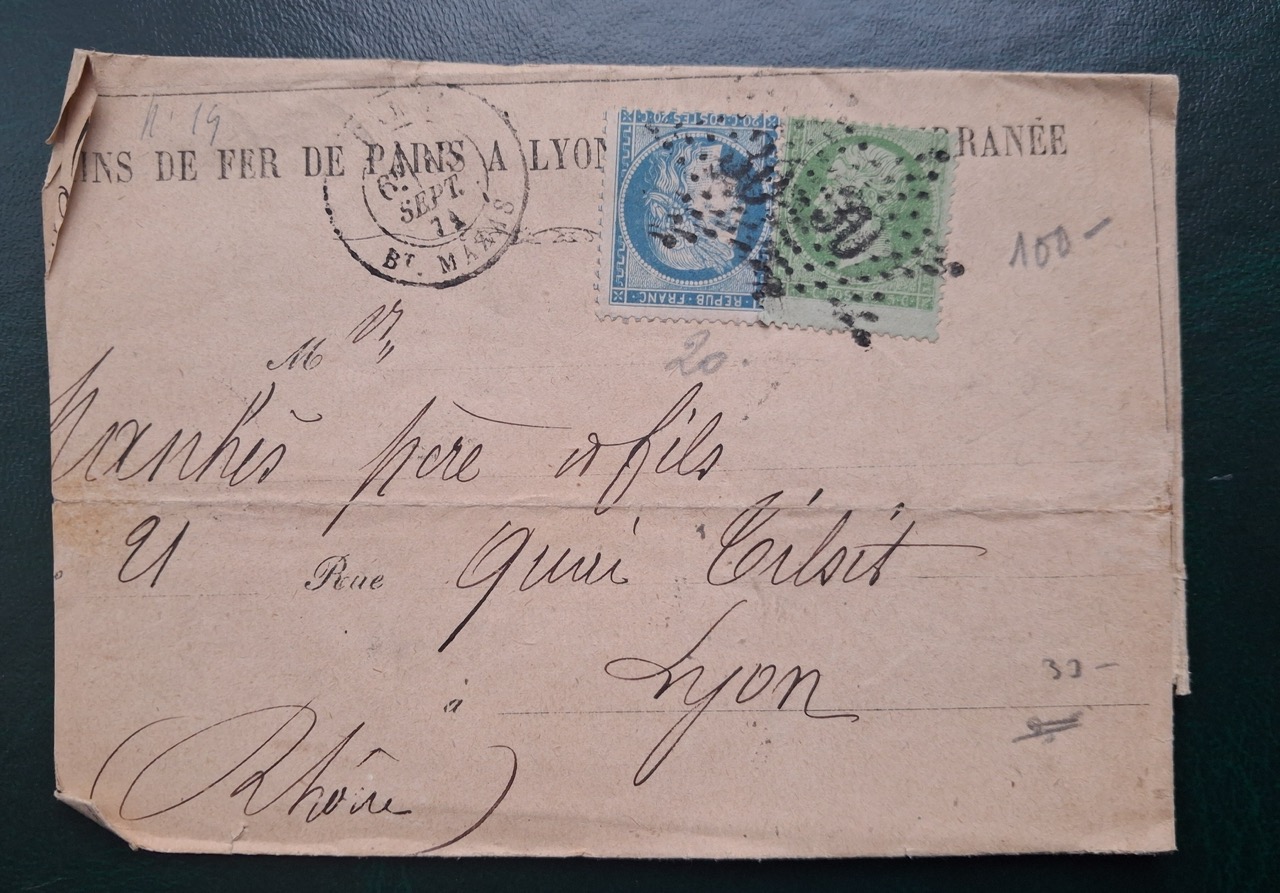 INS DE FER DE PARIS A LYON RRANÉE
SEPT.
71
Bt. MAZAS
20 C POSTES 20 C
REPUB FRANC
30
100 -
M rs
20.
Manhès père et fils
21 Rue Quai Tilsit
à Lyon
(Rhône)